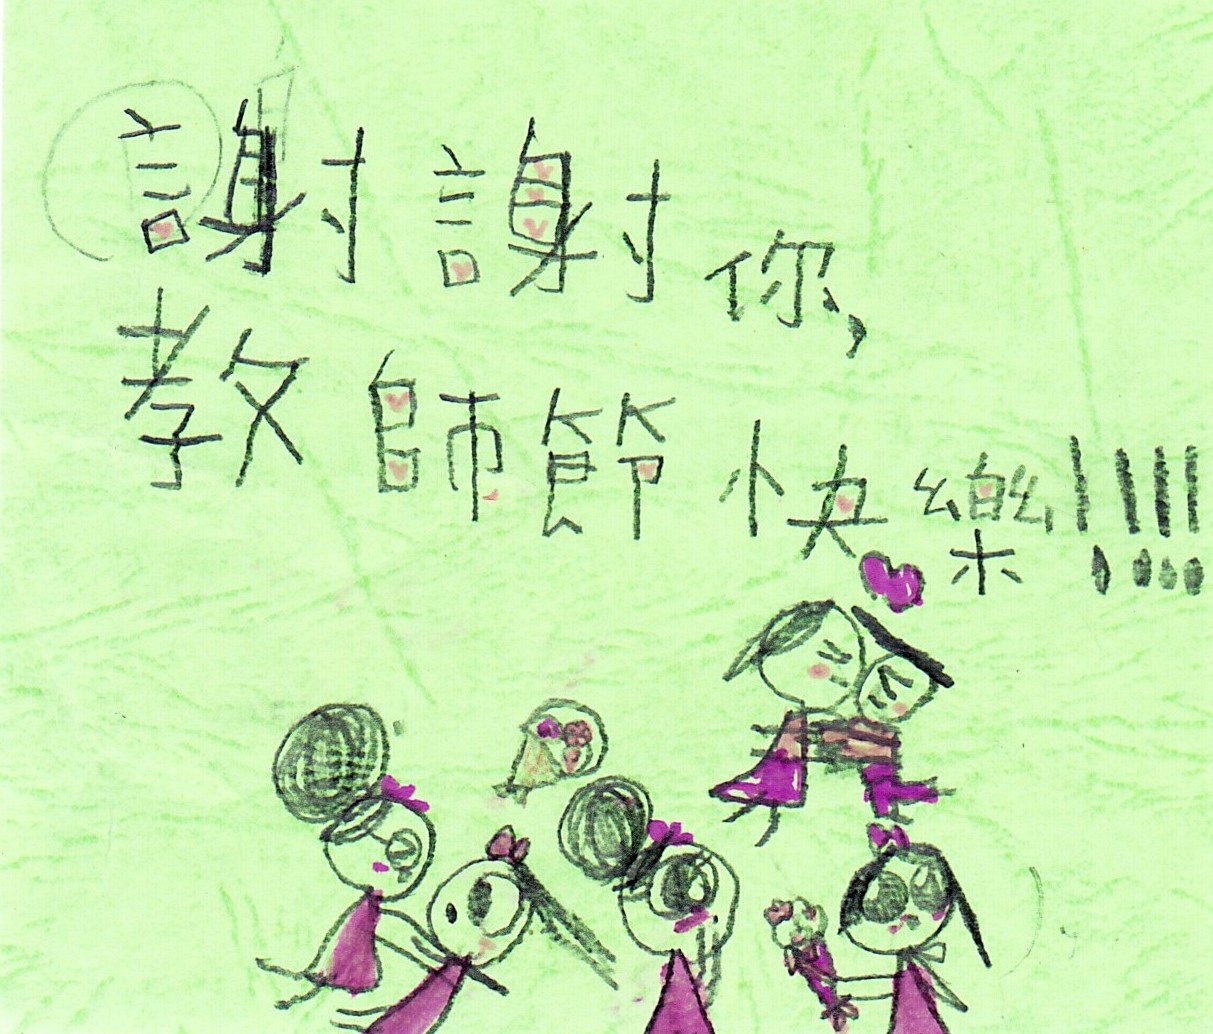 謝謝你,
教師節快樂!!!!